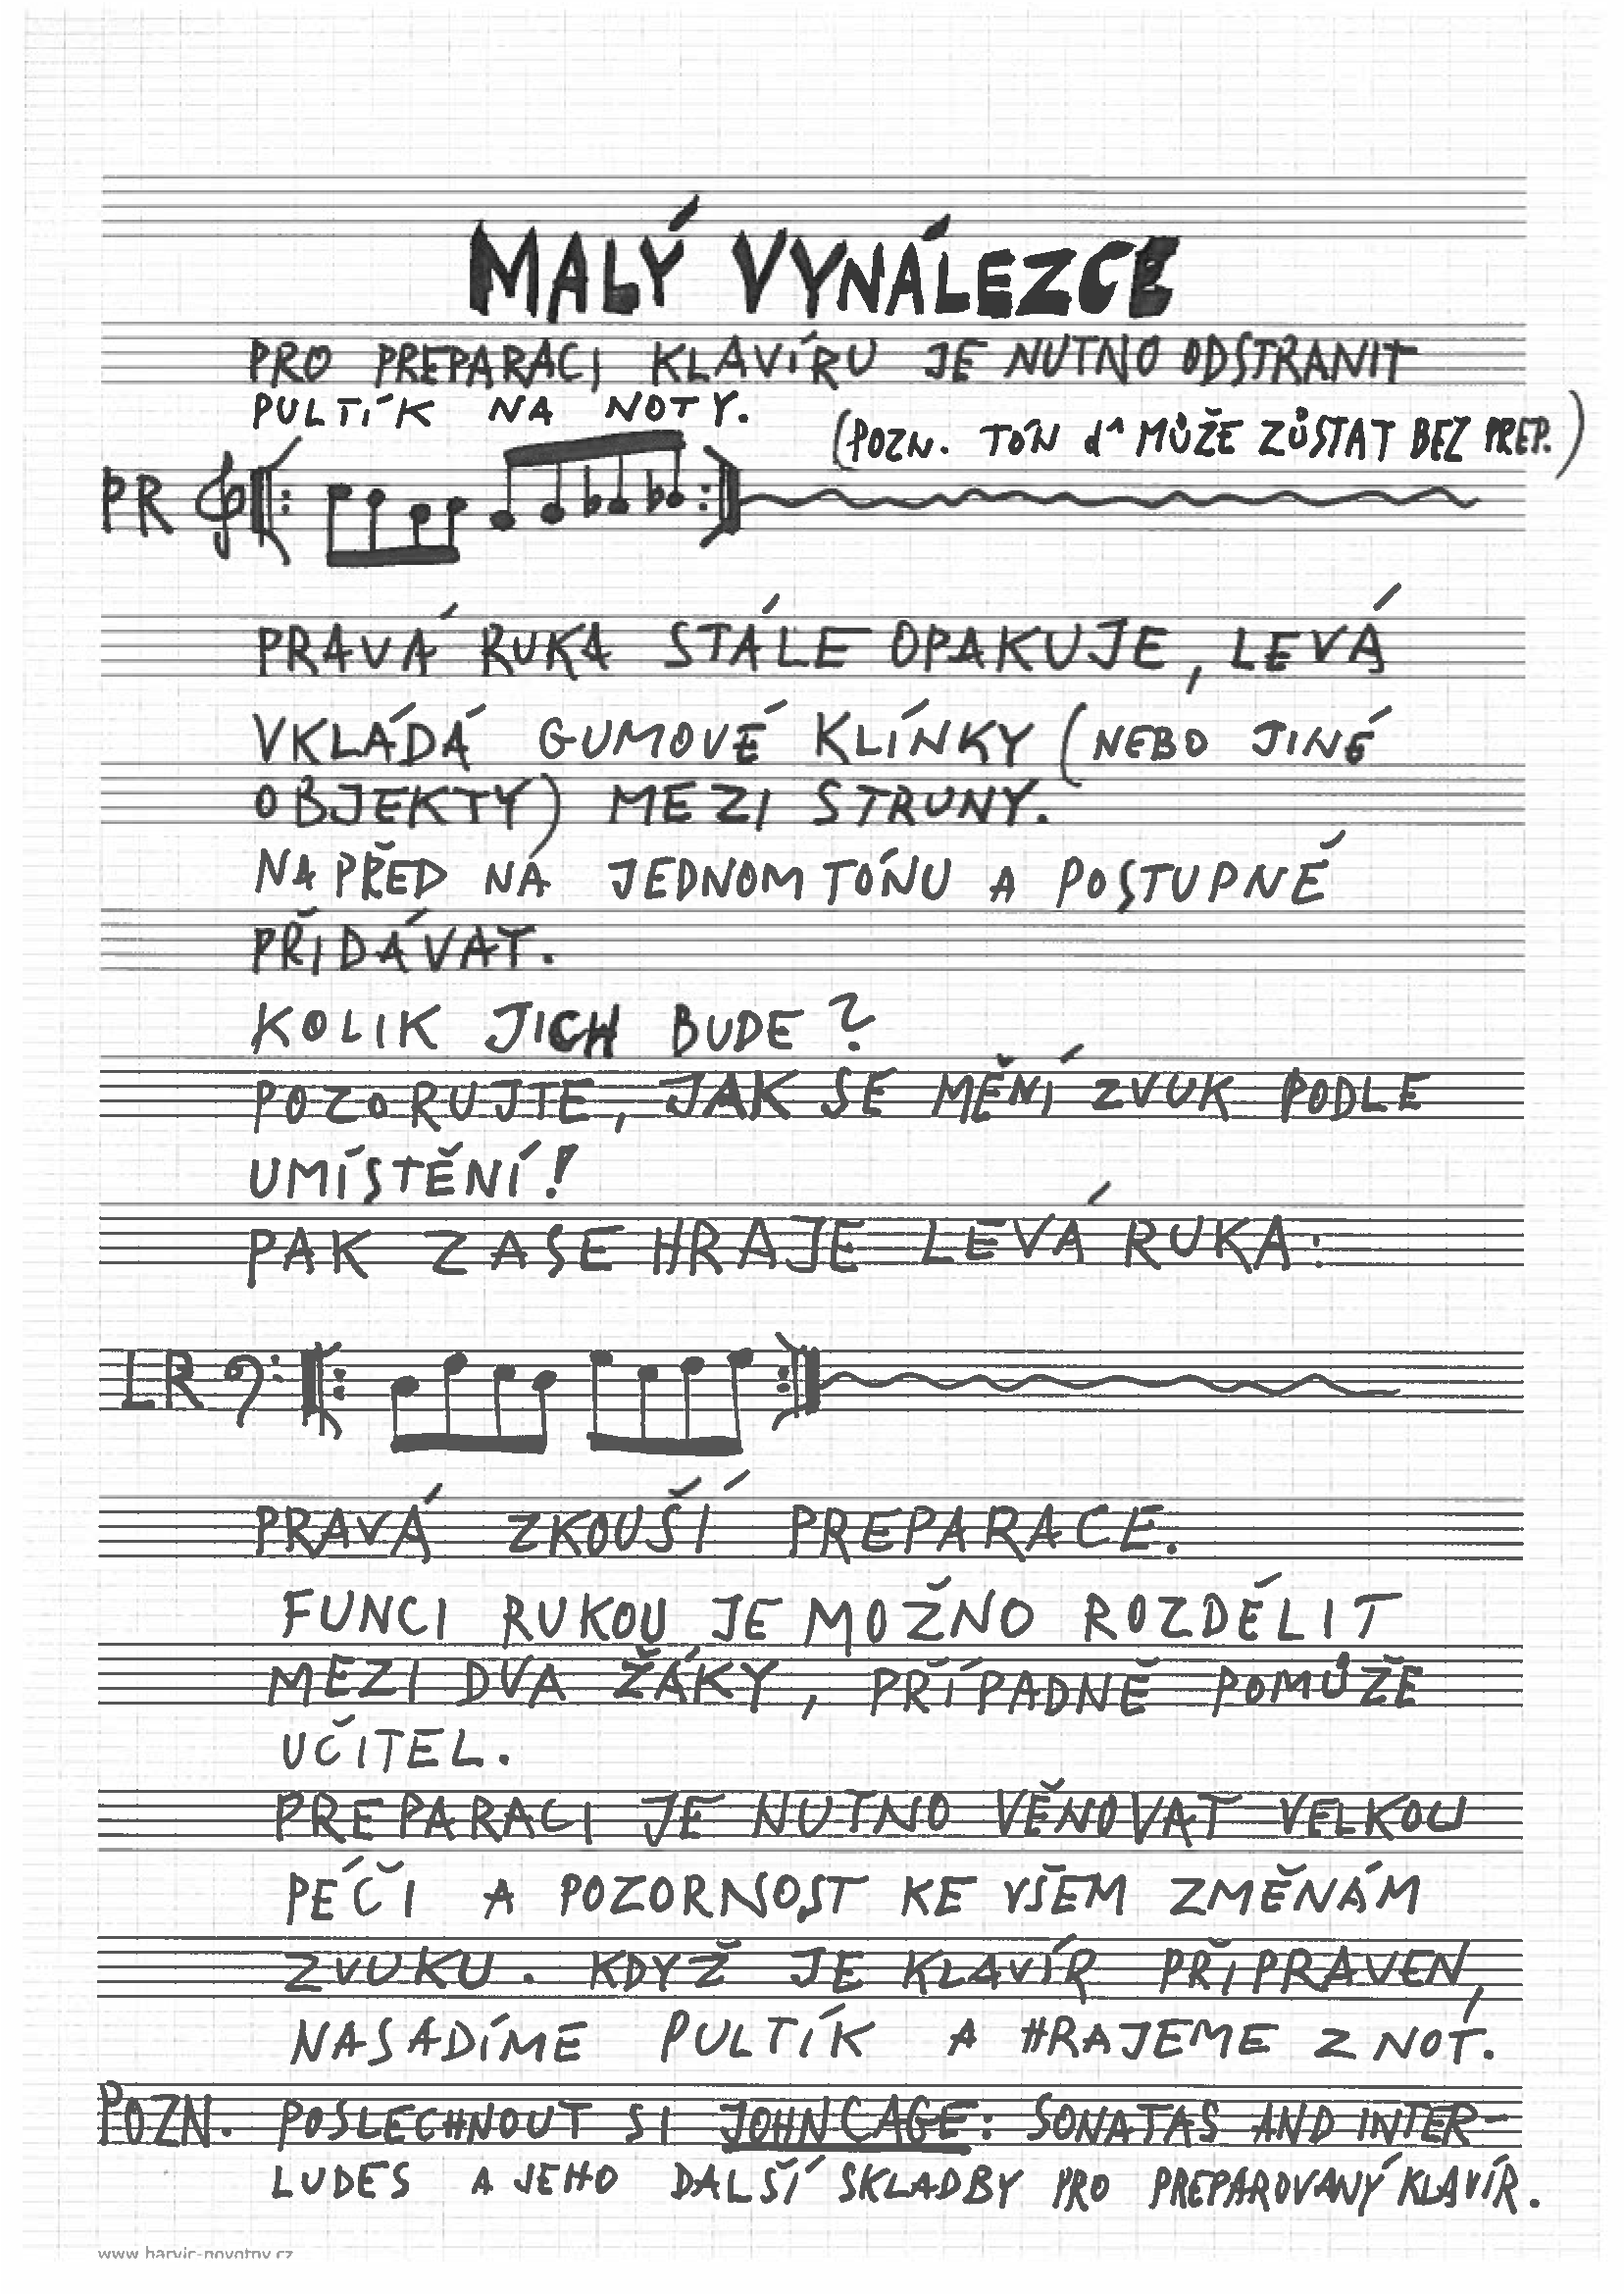 MALÝ VYNÁLEZCE
PRO PREPARACI KLAVÍRU JE NUTNO ODSTRANIT
PULTÍK NA NOTY.
(POZN. TÓN d^ MŮŽE ZŮSTAT BEZ PREP.)
PR
PRAVÁ RUKA STÁLE OPAKUJE, LEVÁ
VKLÁDÁ GUMOVÉ KLÍNKY (NEBO JINÉ
OBJEKTY) MEZI STRUNY.
NAPŘED NA JEDNOM TÓNU A POSTUPNĚ
PŘIDÁVAT.
KOLIK JICH BUDE?
POZORUJTE, JAK SE MĚNÍ ZVUK PODLE
UMÍSTĚNÍ!
PAK ZASE HRAJE LEVÁ RUKA:
LR
PRAVÁ ZKOUŠÍ PREPARACE.
FUNCI RUKOU JE MOŽNO ROZDĚLIT
MEZI DVA ŽÁKY, PŘÍPADNĚ POMŮŽE
UČITEL.
PREPARACI JE NUTNO VĚNOVAT VELKOU
PÉČI A POZORNOST KE VŠEM ZMĚNÁM
ZVUKU. KDYŽ JE KLAVÍR PŘIPRAVEN,
NASADÍME PULTÍK A HRAJEME Z NOT.
POZN. POSLECHNOUT SI JOHN CAGE: SONATAS AND INTER-
LUDES A JEHO DALŠÍ SKLADBY PRO PREPAROVANÝ KLAVÍR.
www.harvic-novotny.cz